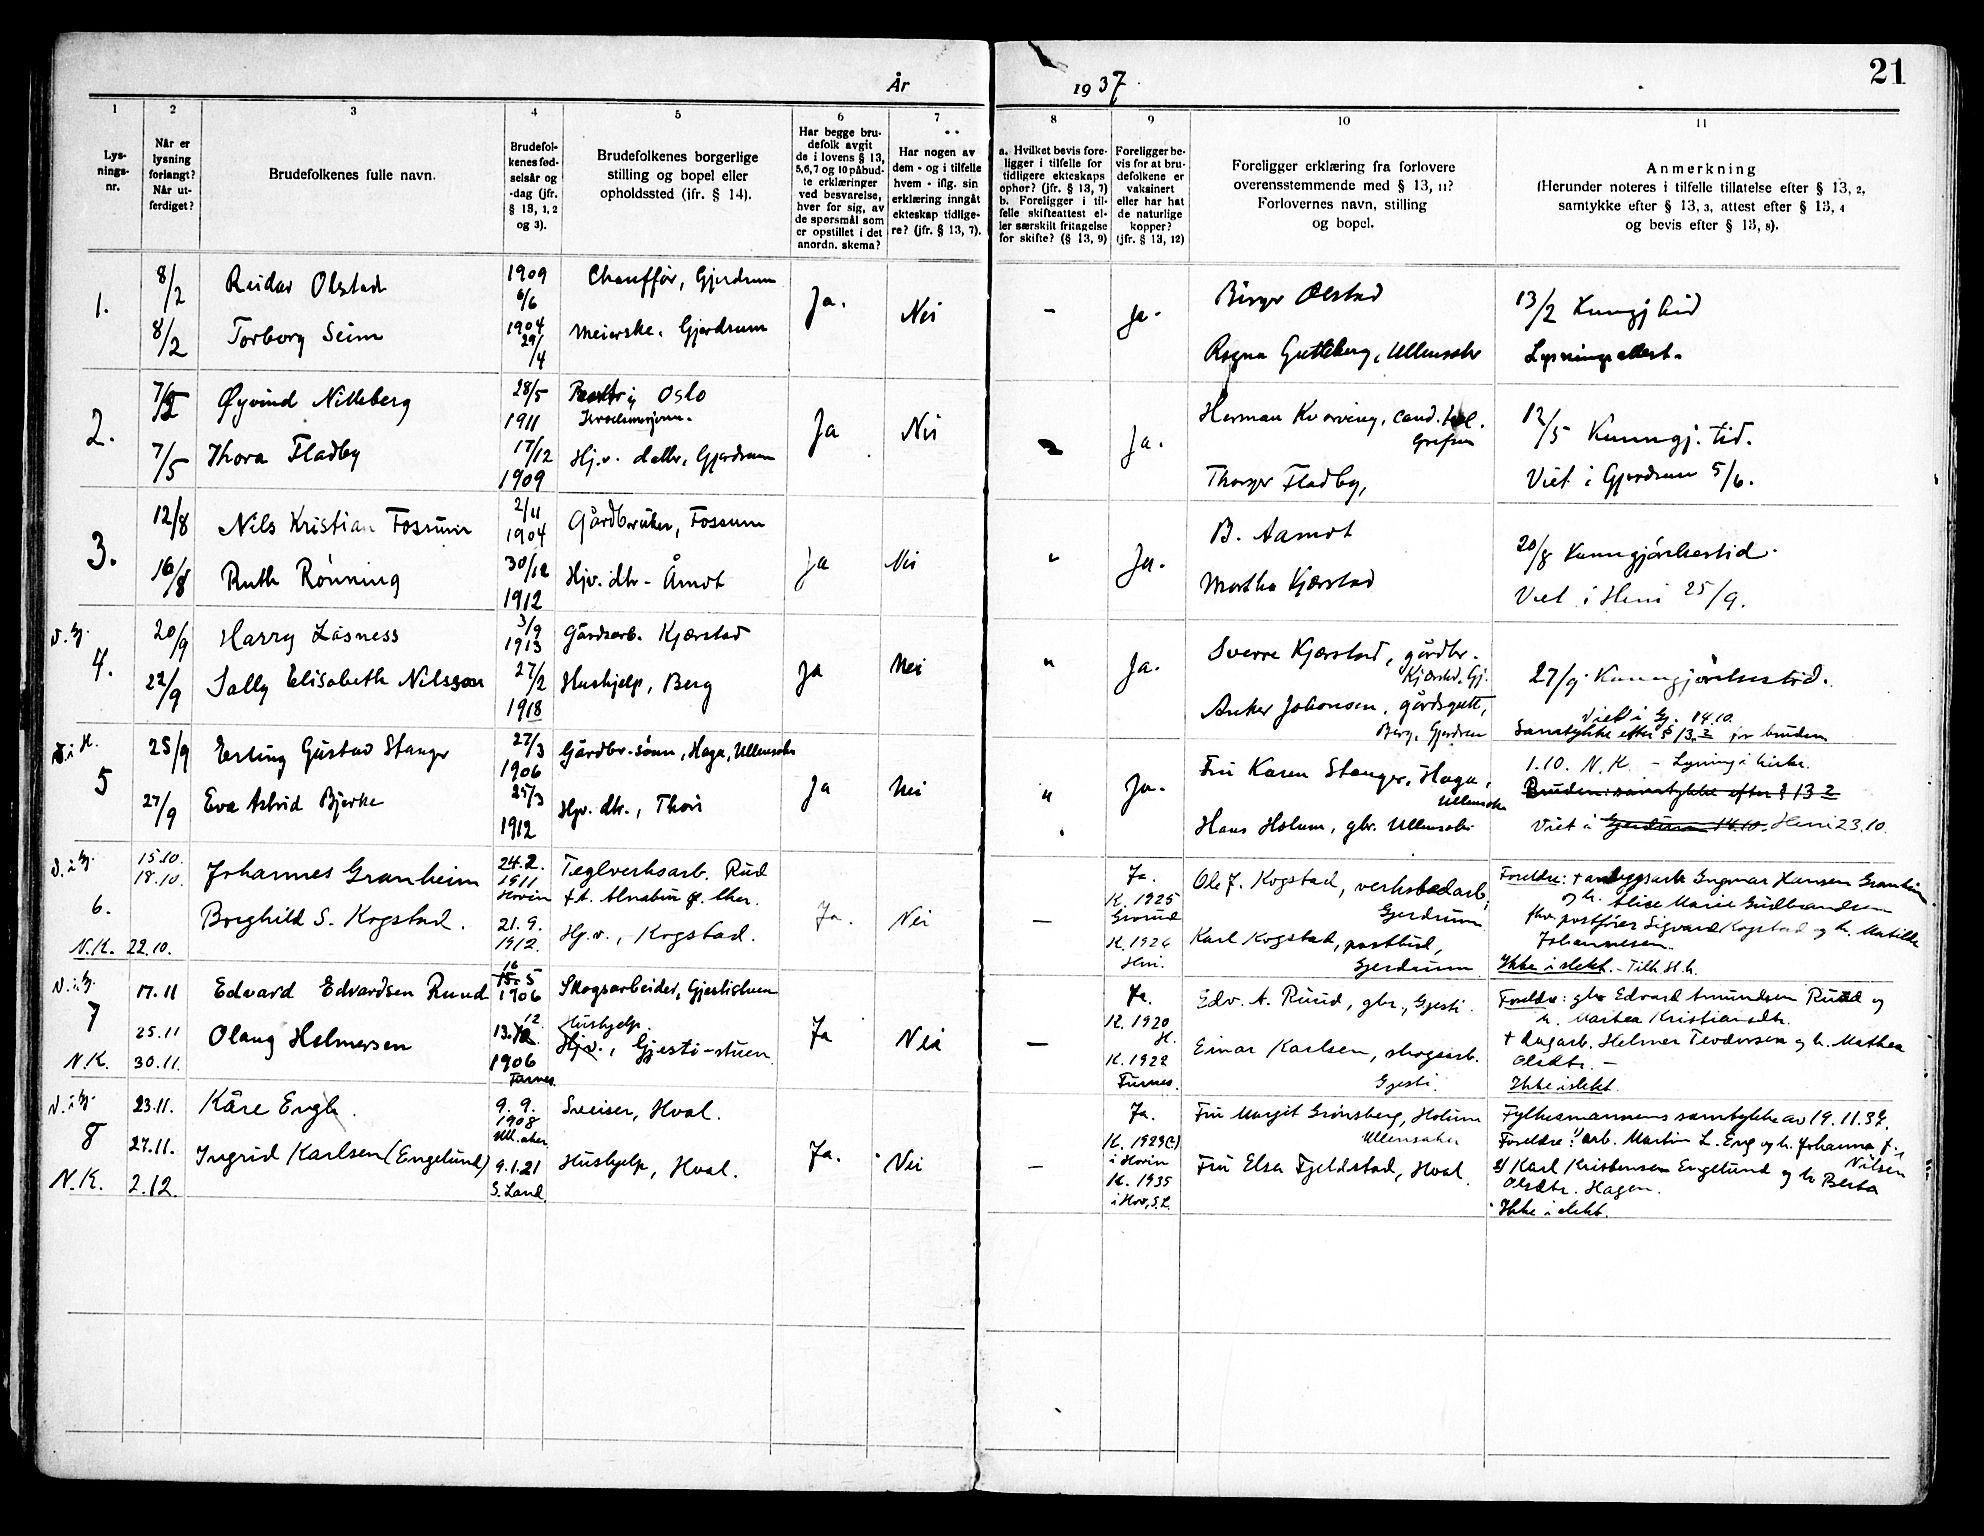 År 1937
21
1
2
3
4
5
6
7
8
9
10
11
Lys-
nings-
nr.
Når er
lysning
forlangt?
Når ut-
ferdiget?
Brudefolkenes fulle navn.
Brudefol-
kenes fød-
selsår og
-dag (jfr.
§ 13, 1, 2
og 3).
Brudefolkenes borgerlige
stilling og bopel eller
opholdssted (jfr. § 14).
Har begge bru-
defolk avgit
de i lovens § 13,
5,6,7 og 10 påbud-
te erklæringer
ved besvarelse,
hver for sig, av
de spørsmål som
er opstillet i det
anordn. skema?
Har nogen av
dem - og i tilfelle
hvem - iflg. sin
erklæring inngått
ekteskap tidlige-
re? (jfr. § 13, 7).
a. Hvilket bevis fore-
ligger i tilfelle for
tidligere ekteskaps
ophør? (jfr. § 13, 7)
b. Foreligger i til-
felle skifteattest el-
ler særskilt fritagelse
for skifte? (§ 13, 9)
Foreligger be-
vis for at bru-
defolkene er
vaksinert
eller har hat
de naturlige
kopper?
(jfr. § 13, 12)
Foreligger erklæring fra forlovere
overensstemmende med § 13, 11?
Forlovernes navn, stilling
og bopel.
Anmerkning
(Herunder noteres i tilfelle tillatelse efter § 13, 2,
samtykke efter § 13, 3, attest efter § 13, 4
og bevis efter § 13, 8).
1.
8/2
8/2
Reidar Olstad
Torborg Seim
1909
6/6
1904
29/4
Chauffør, Gjerdrum
Meierske, Gjerdrum
Ja.
Nei
-
Ja.
Birger Olstad
Ragna Gutteberg, Ullensaker
13/2 Kungj. tid
Lysningsattest.
2.
7/5
7/5
Øyvind Nilleberg
Thora Fladby
28/5
1911
17/12
1909
Oslo
Hj.v. datter, Gjerdrum
Ja
Nei
Ja.
Herman Kvarving, cand.
Grefsen
Thorger Fladby,
12/5 Kunngj. tid.
Viet i Gjerdrum 5/6.
3.
12/8
16/8
Nils Kristian Fossum
Ruth Rønning
2/11
1904
30/12
1912
Gårdbruker, Fossum
Hjv. dtr - Åmot
Ja
Nei
"
Ja.
B. Aamot
Martha Kjærstad
20/8 Kunngjørelsestid.
Viet i Heni 25/9.
V.i Gj.
4.
20/9
22/9
Harry Låsness
Sally Elisabeth Nilsson
3/9
1913
27/2
1918
Gårdsarb. Kjærstad
Hushjelp, Berg
Ja
Nei
"
Ja.
Sverre Kjærstad, gårdbr.
Kjærstad, Gj.
Anker Johansen, gårdsgutt,
Berg, Gjerdrum
27/9 Kunngjørelsestid.
Viet i Gj. 14.10.
Samtykke efter § 13.2 for bruden
V.i H.
5
25/9
27/9
Erling Gustav Stanger
Eva Astrid Bjerke
27/3
1906
25/3
1912
Gårdbr.-sønn, Haga, Ullensaker
Hjv. dtr., Thori
Ja
Nei
"
Ja.
Fru Karen Stanger, Haga,
Ullensaker
Hans Holum, gbr. Ullensaker
1.10. N.K. - Lysning i kirke.
Bruden: samtykke efter § 13 2
Viet i Gjerdrum 14.10. Heni 23.10.
V.i Gj.
6.
N.K.
15.10.
18.10.
22.10.
Johannes Granheim
Borghild S. Kogstad.
24.2.
1911
Hovin
21.9.
1912.
Teglverksarb. Rud
f.t. Alnabru
Hj.v., Kogstad.
Ja.
Nei
-
Ja.
K. 1925
Grorud
K. 1926
Heni.
Ole J. Kogstad, verkstedarb,
Gjerdrum.
Karl Kogstad, postbud,
Gjerdrum
Foreldre: † anleggsarb Ingmar Hansen Granheim
og h. Alise Marie Gudbrandsen
fhv. postfører Sigvard Kogstad og h. Matilde
Johannesen.
Ikke i slekt. - Tilh. St.k.
V.i Gj.
7
N.K.
17.11
25.11
30.11.
Edvard Edvardsen Ruud
Olaug Helmersen
16
15.5
1906
12
13.
1906
Furnes.
Skogsarbeider, Gjestistuen
Hushjelp.
Hjv., Gjesti-stuen
Ja
Nei
-
Ja.
K. 1920
H.
K. 1922
Furnes.
Edv. A. Ruud, gbr., Gjesti.
Einar Karlsen, skogsarb.
Gjesti.
Foreldre: gbr Edvard Amundsen Ruud og
h. Martea Kristiansdtr.
† dagarb. Helmer Teodorsen og h. Mathea
Olsdtr. -
Ikke i slekt.
V.i Gj.
8
N.K.
23.11.
27.11.
2.12.
Kåre Engh.
Ingrid Karlsen (Engelund)
9.9.
1908
Ull.aker
9.1.21
S. Land.
Sveiser, Hval.
Hushjelp, Hval.
Ja.
Nei
-
Ja.
K. 1923(?)
i Hovin
K. 1935
i Hov, S.L.
Fru Margit Grønsberg, Holum
Ullensaker
Fru Elsa Fjeldstad, Hval.
Fylkesmannens samtykke av 19.11.37.
Foreldre: 1) arb. Martin L. Eng og h. Johanna f.
Nilsen
2) Karl Kristensen Engelund og h. Berta
Olsdtr. Hagen.
Ikke i slekt.